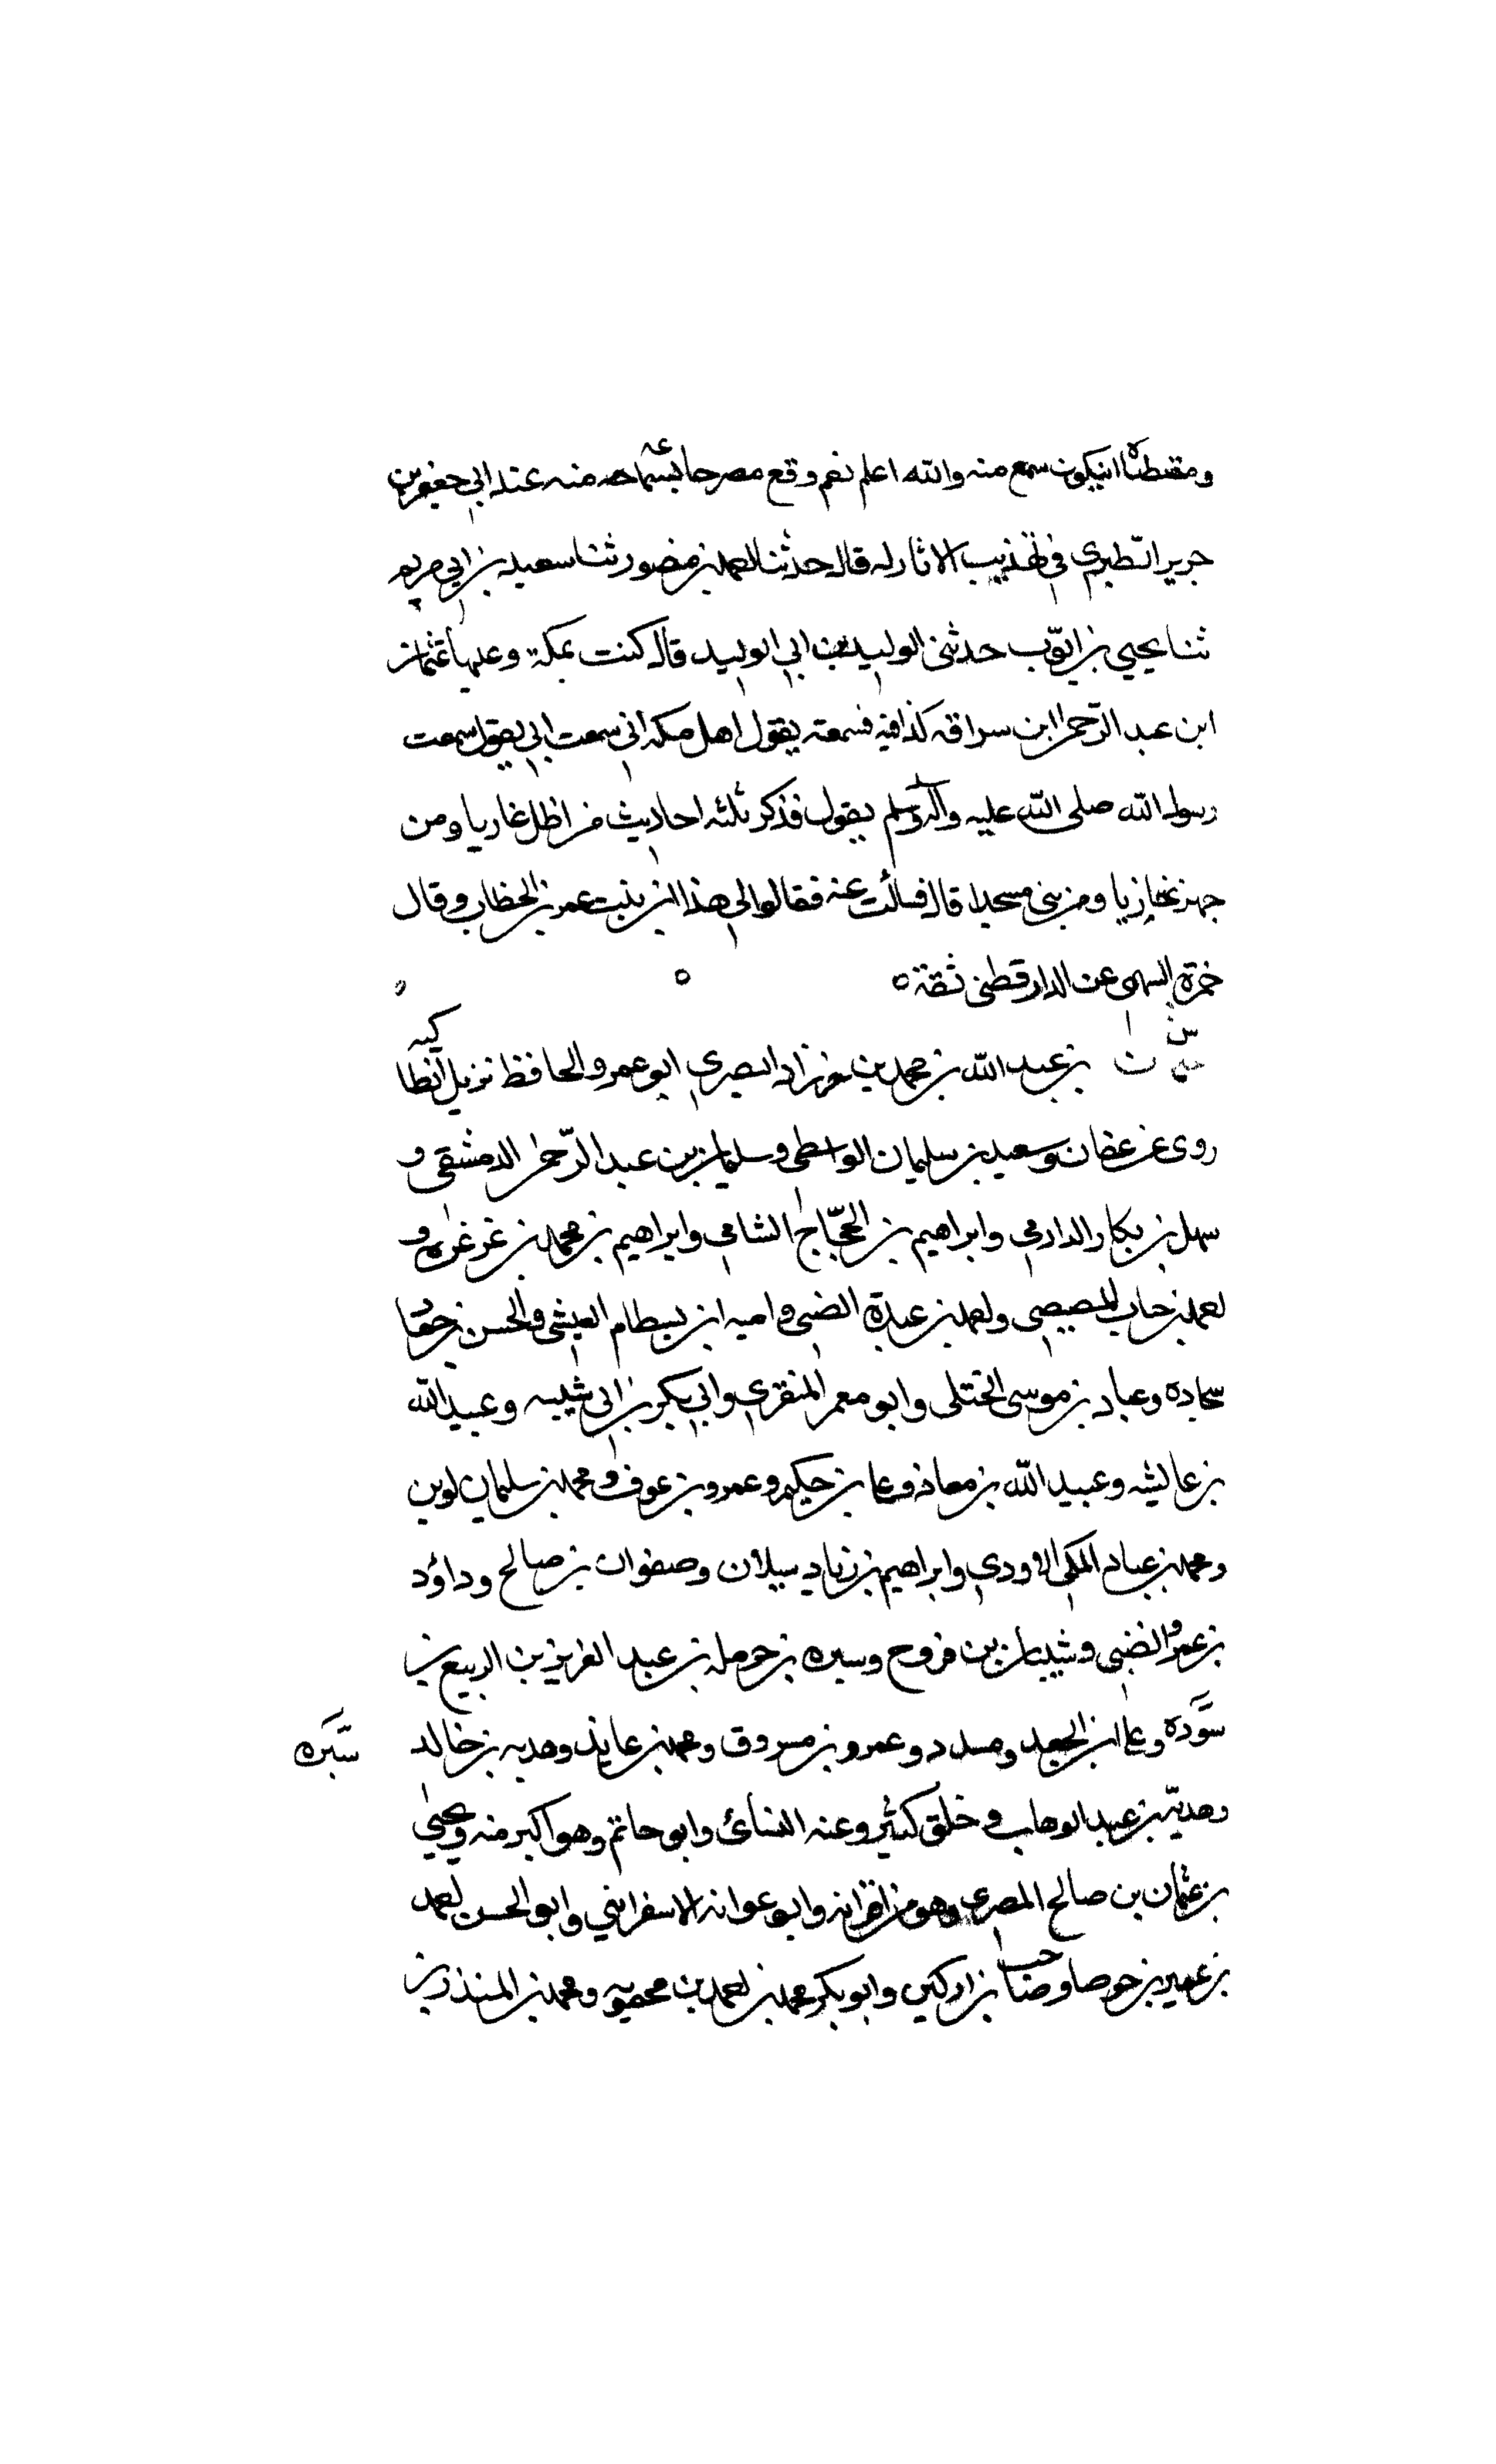 ومقتضاه ان يكون سمع منه والله اعلم نعم وقع مصرحا بسماعه منه عند ابي جعفر بن
جرير الطبري في تهذيب الاثار له قال حدثنا احمد بن منصور ثنا سعيد بن ابي مريم
ثنا يحيي بن ايوب حدثني الوليد بن ابي الوليد قال كنت بمكة وعليها عثمان
ابن عبد الرحمن ابن سراقه كذا فيه فسمعته يقول اهل مكه اني سمعت ابي يقول سمعت
رسول الله صلى الله عليه وآله وسلم يقول فذكر ثلثه احاديث من اظل غازيا ومن
جهز غازيا ومن بني مسجدا قال فسألت عنه فقالوا لي هذا ابن بنت عمر بن الخطاب وقال
حمزة السهمي عن الدارقطني ثقة ٥
س
بن عبد الله بن محمد بن خرزاد البصري ابو عمرو الحافظ نزيل انطاكيه
روى عن عفان وسعيد بن سليمان الواسطي وسليمان بن عبد الرحمن الدمشقي و
سهل بن بكار الدارمي وابراهيم بن الحجاج الشامي وابراهيم بن محمد بن عرعره و
احمد بن جناب المصيصي واحمد بن عبدة الضبي واميه ابن بسطام العيشي والحسن بن حماد
سجاده وعباد بن موسى الختلي وابو معمر المنقري وابي بكر بن ابي شيبه وعبيد الله
بن عائشه وعبيد الله بن معاذ وعلى بن حكيم وعمرو بن عوف ومحمد بن سليمان لوين
ومحمد بن عباد المكي الاودي وابراهيم بن زياد سبلان وصفوان بن صالح وداؤد
بن عمرو الضبي وشيبان بن فروح وسبره بن حرمله بن عبد العزيز بن الربيع بن
سبره وعلى ابن الجعد ومسدد وعمرو بن مرزوق ومحمد بن عايذ وهدبه بن خالد
سبره
وهدية بن عبد الوهاب في خلق كثير وعنه النسائ وابو حاتم وهو اكبر منه ويحيي
بن عثمان بن صالح المصري وهو من اقرانه وابو عوانه الاسفرايني وابو الحسن احمد
بن عمير بن جوصا وحاجب بن اركين وابو بكر محمد بن احمد بن محمويه ومحمد بن المنذر بن